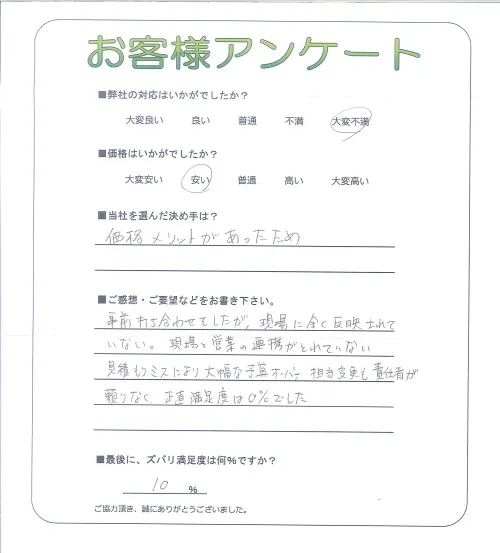 お客様アンケート
■弊社の対応はいかがでしたか？
大変良い 良い 普通 不満 大変不満
■価格はいかがでしたか？
大変安い 安い 普通 高い 大変高い
■当社を選んだ決め手は？
価格メリットがあったため
■ご感想・ご要望などをお書き下さい。
事前打ち合わせをしたが、現場に全く反映されて
いない。現場と営業の連携がとれていない
見積もりミスにより大幅な予算オーバー 担当変更も責任者が
頼りなく、正直満足度は0%でした
■最後に、ズバリ満足度は何%ですか？
10 %
ご協力頂き、誠にありがとうございました。